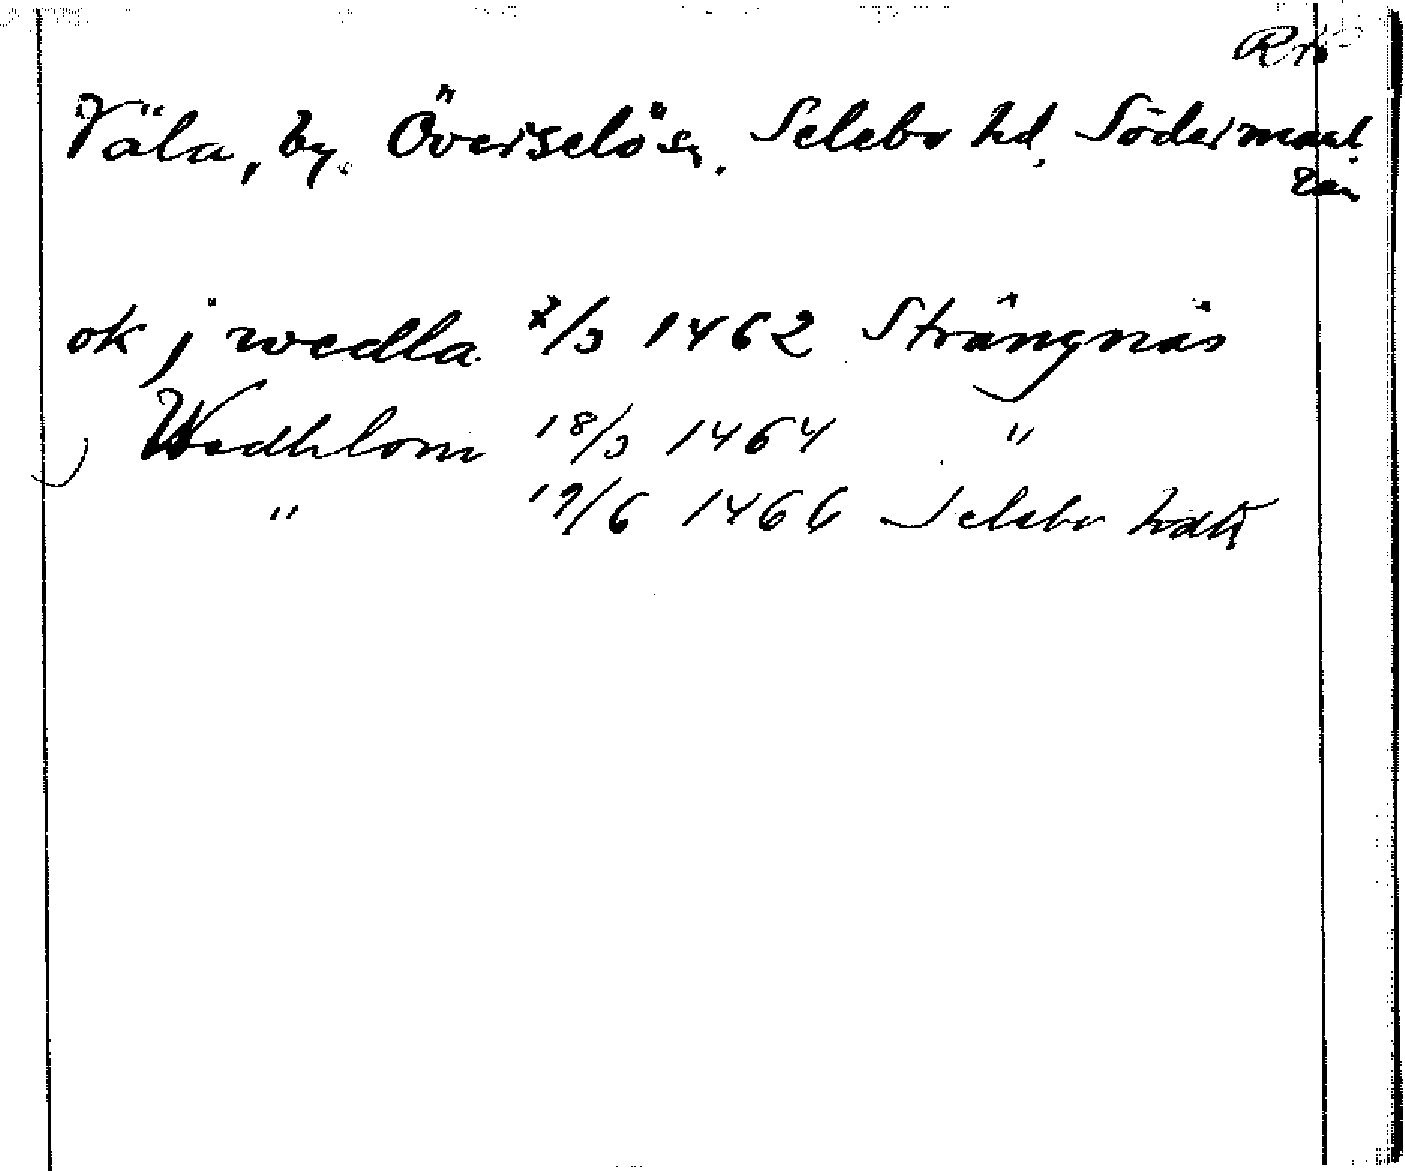 Väla, by. Överselö sn. Selebo hd, Södermanl.
län
ok j wedla 7/3 1462 Strängnäs
j Wedhlom 18/3 1464 "
" 17/6 1466 Selebo hdtg